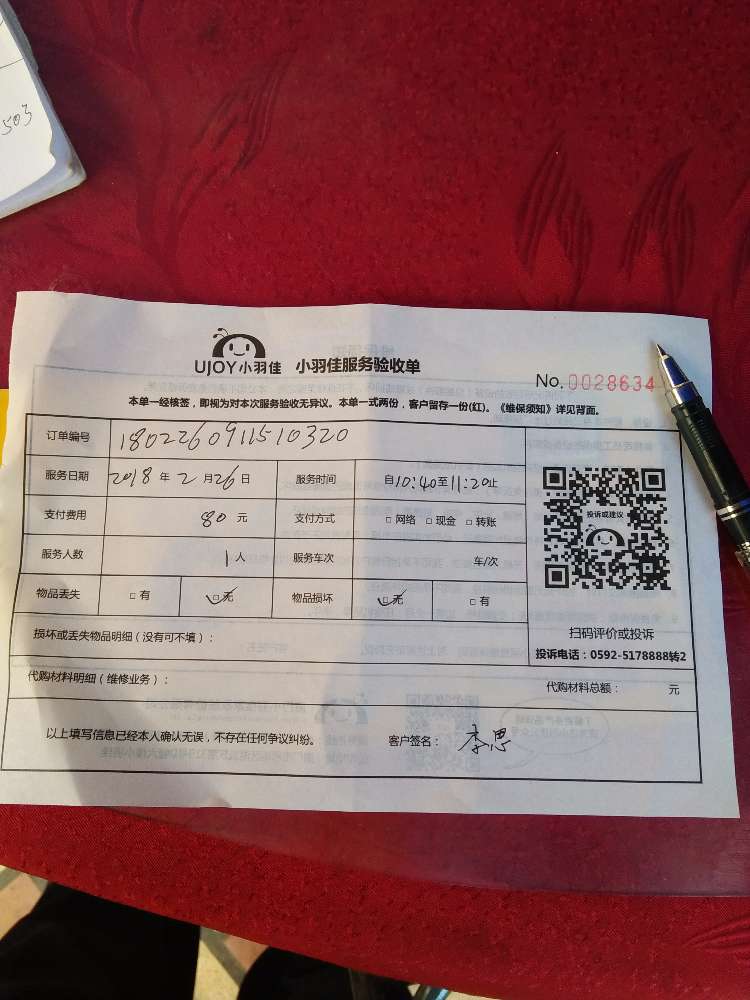 503
UJOY小羽佳 小羽佳服务验收单
No.0028634
本单一经核签，即视为对本次服务验收无异议。本单一式两份，客户留存一份(红)。《维保须知》详见背面。
订单编号 180226091151０320
服务日期 2018年2月26日 服务时间 自10:40至11:20止
支付费用 80元 支付方式 □网络 □现金 □转账
服务人数 1人 服务车次 车/次
物品丢失 □有 □无 物品损坏 □无 □有
投诉或建议
扫码评价或投诉
投诉电话：0592-5178888转2
损坏或丢失物品明细（没有可不填）：
代购材料明细（维修业务）： 代购材料总额： 元
以上填写信息已经本人确认无误，不存在任何争议纠纷。 客户签名：李思